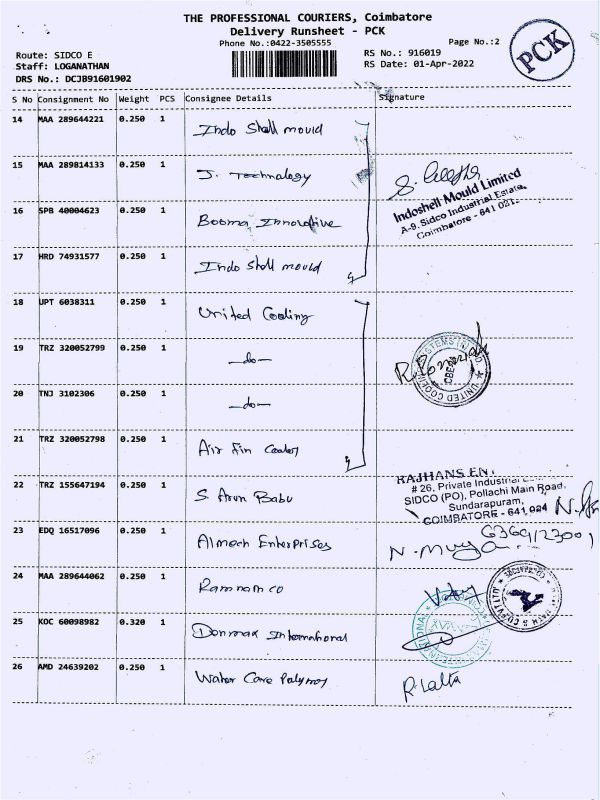 THE PROFESSIONAL COURIERS, Coimbatore
Delivery Runsheet - PCK
Phone No.:0422-3505555
Page No.:2
PCK
Route: SIDCO E
RS No.: 916019
Staff: LOGANATHAN
RS Date: 01-Apr-2022
DRS No.: DCJB91601902
S No Consignment No Weight PCS Consignee Details Signature
14 MAA 289644221 0.250 1 Indo Shell mould
15 MAA 289814133 0.250 1 J. Technology
Indoshell Mould Limited
A-9, Sidco Industrial Estate,
Coimbatore - 641 021.
16 SPB 40004623 0.250 1 Booma Innovative
17 HRD 74931577 0.250 1 Indo Shell mould
18 UPT 6038311 0.250 1 United Cooling
19 TRZ 320052799 0.250 1 —do—
20 TNJ 3102306 0.250 1 —do—
21 TRZ 320052798 0.250 1 Air Fin Cooler
22 TRZ 155647194 0.250 1 S. Arun Babu
RAJHANS
# 26, Private Industrial
SIDCO (PO), Pollachi Main Road,
Sundarapuram,
COIMBATORE - 641 024
23 EDQ 16517096 0.250 1 Almech Enterprises
24 MAA 289644062 0.250 1 Ramnam co
25 KOC 60098982 0.320 1 Donmax International
26 AMD 24639202 0.250 1 Water Care Polymer
R. Lalta